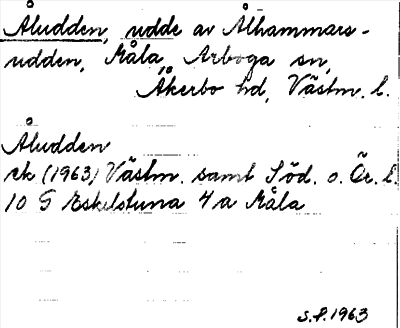 Åludden, udde av Ålhammars-
udden, Måla, Arboga sn,
Åkerbo hd, Västm. l.
Åludden
rk (1963) Västm. samt Söd. o. Ör. l.
10 G Eskilstuna 4 a Måla
S.F. 1963